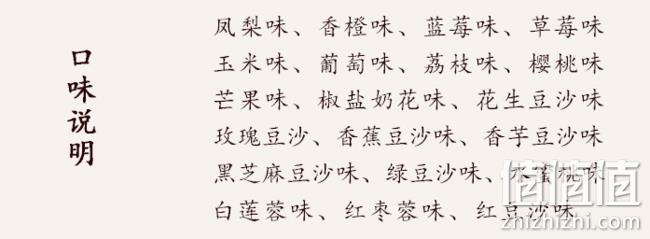 口味说明
凤梨味、香橙味、蓝莓味、草莓味
玉米味、葡萄味、荔枝味、樱桃味
芒果味、椒盐奶花味、花生豆沙味
玫瑰豆沙、香蕉豆沙味、香芋豆沙味
黑芝麻豆沙味、绿豆沙味、水蜜桃味
白莲蓉味、红枣蓉味、红豆沙味
值值值
zhizhizhi.com